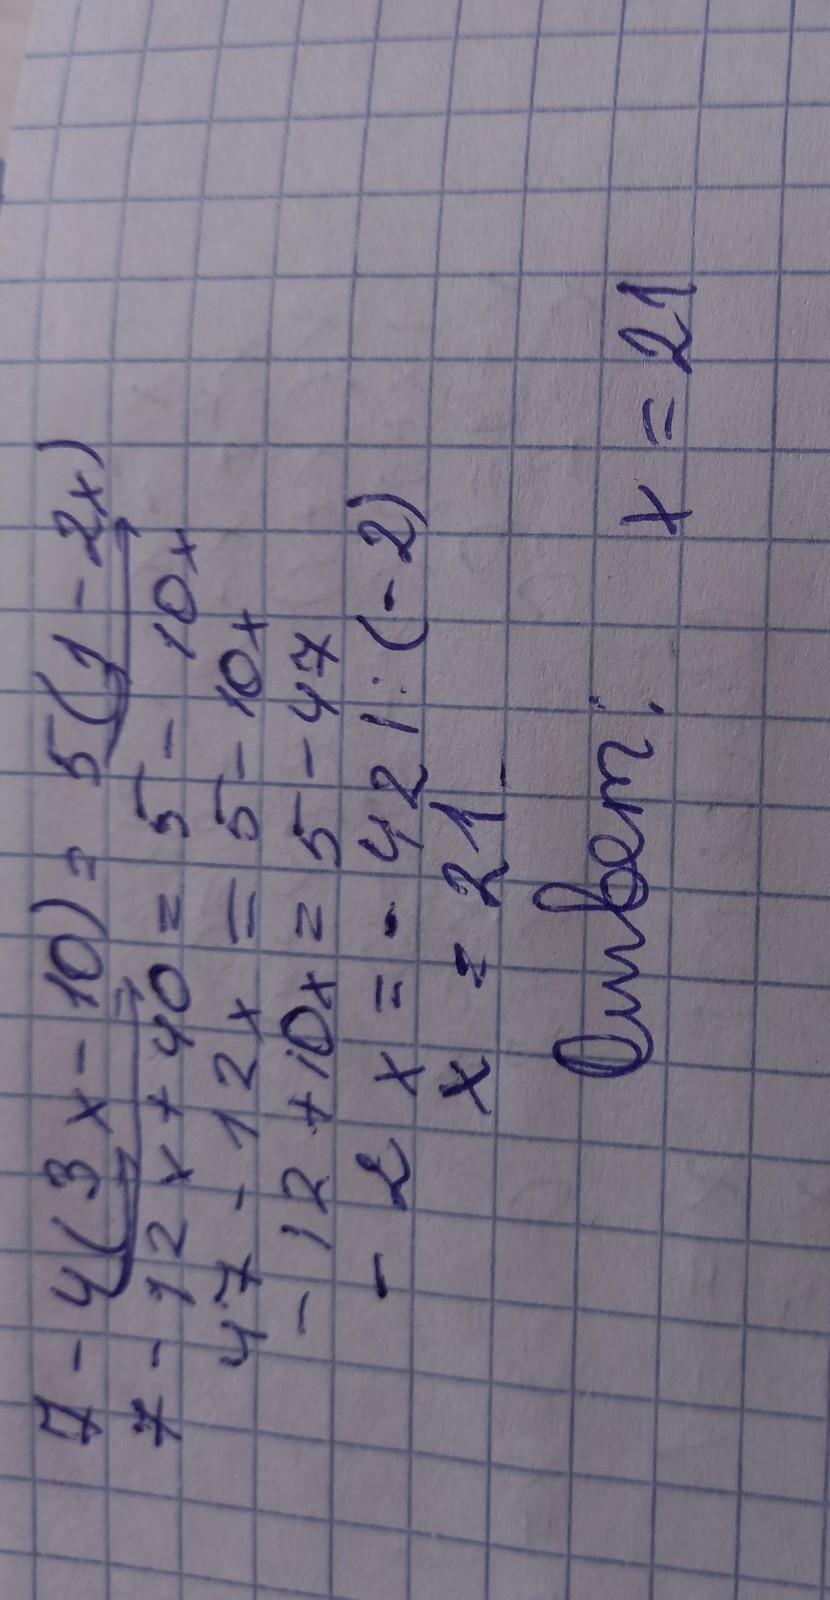 7 - 4(3x - 10) = 5(1 - 2x)
7 - 12x + 40 = 5 - 10x
47 - 12x = 5 - 10x
- 12 + 10x = 5 - 47
- 2x = - 42 | : (-2)
x = 21
Ответ: x = 21